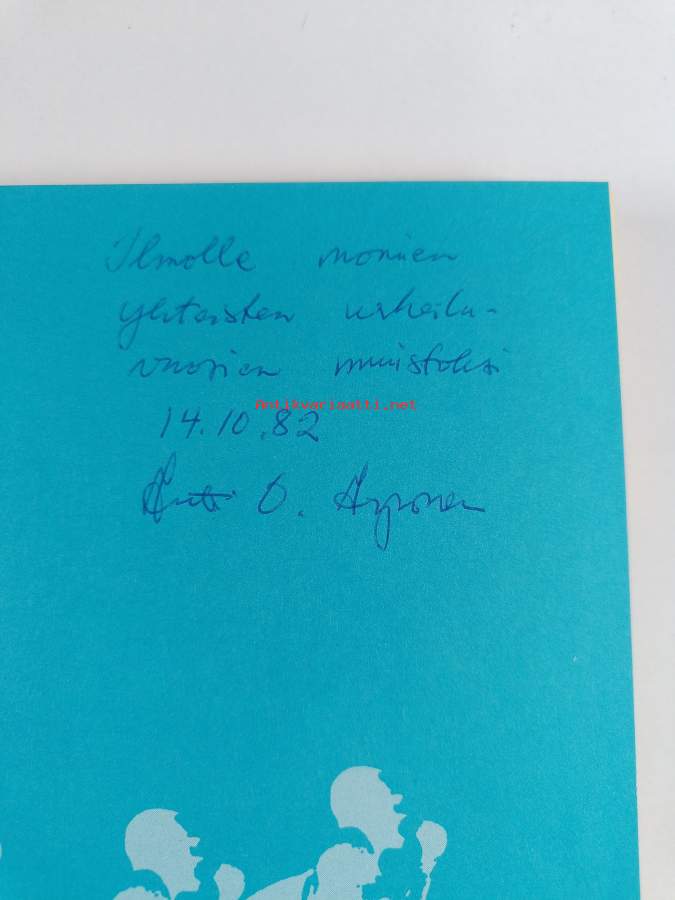 Ilmolle monien
yhteisten urheilu-
vuosien muistoksi
Antikvariaatti.net
14.10.82
Antti O. Arponen